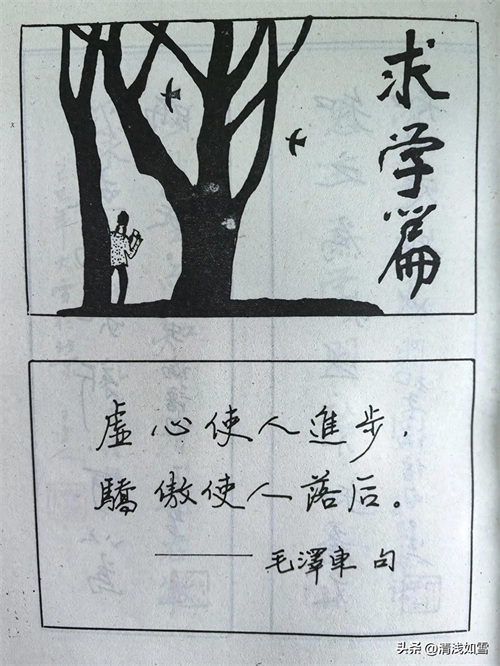 求学篇
虚心使人進步，
驕傲使人落后。
——毛澤東 句
头条@清浅如雪